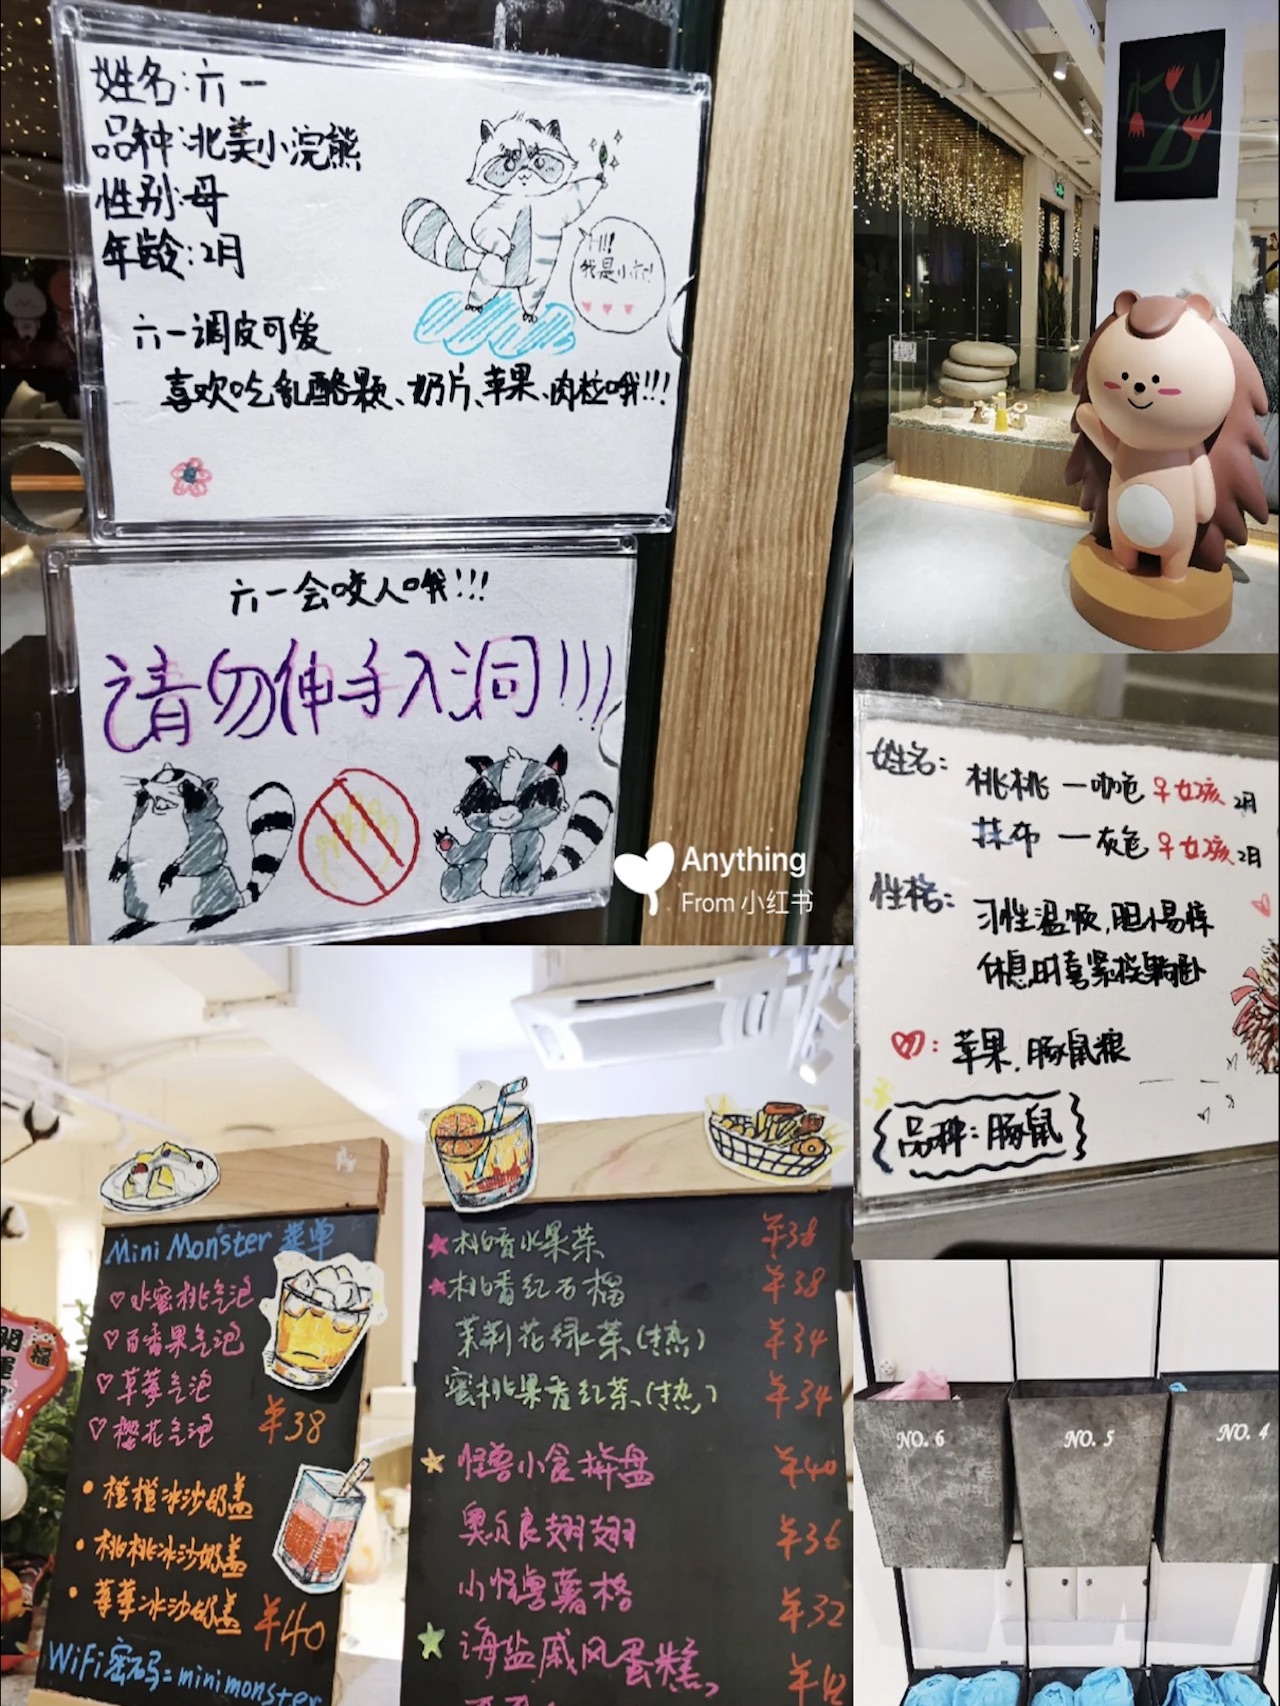 姓名:六一
品种:北美小浣熊
性别:母
年龄:2月
HI!
我是小六!
六一调皮可爱
喜欢吃乳酪颗、奶片、苹果、肉粒哦!!!
六一会咬人哦!!!
请勿伸手入洞!!!
Anything
From 小红书
姓名: 桃桃 一咖色 ♀女孩 2月
抹布 一灰色 ♀女孩 2月
性格: 习性温顺,胆小易惊
休息时喜紧挨躺卧
: 苹果,豚鼠粮
{品种:豚鼠}
Mini Monster 菜单
♡水蜜桃气泡
♡百香果气泡
♡草莓气泡
♡樱花气泡 ¥38
• 橙橙冰沙奶盖
• 桃桃冰沙奶盖
• 莓莓冰沙奶盖 ¥40
WiFi密码=minimonster
★桃香水果茶 ¥38
★桃香红石榴 ¥38
茉莉花绿茶(热) ¥34
蜜桃果香红茶(热) ¥34
☆ 怪兽小食拼盘 ¥40
奥尔良翅翅 ¥36
小怪兽薯格 ¥32
☆ 海盐戚风蛋糕 ¥42
NO. 6
NO. 5
NO. 4